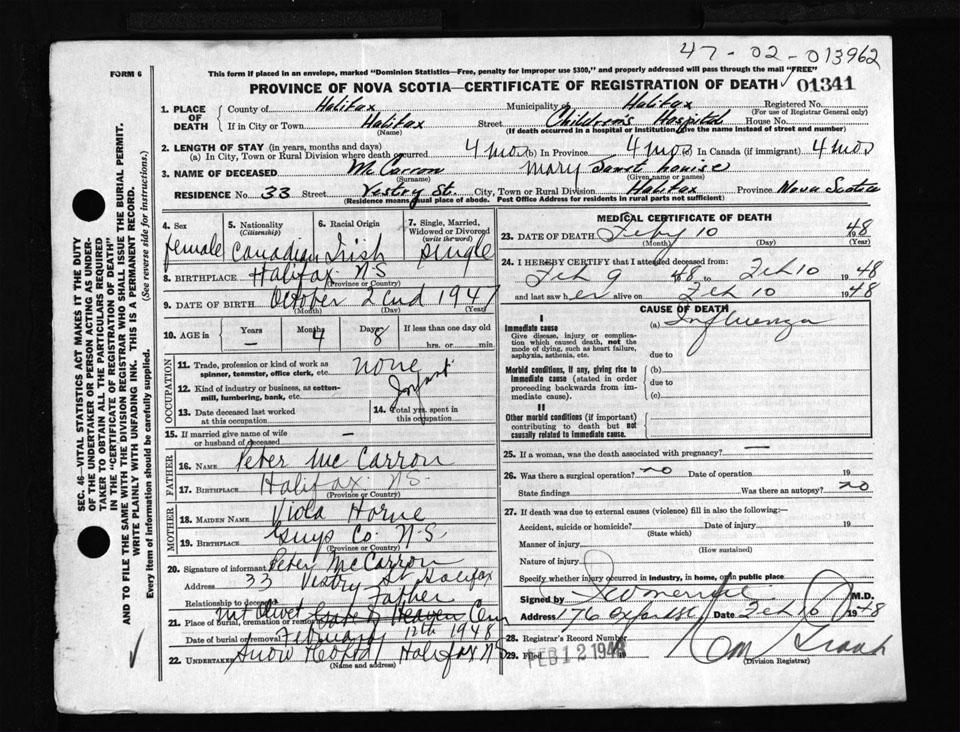 47-02-013962
FORM 6
This form if placed in an envelope, marked "Dominion Statistics—Free, penalty for improper use $300," and properly addressed will pass through the mail "FREE"
PROVINCE OF NOVA SCOTIA—CERTIFICATE OF REGISTRATION OF DEATH 01341
1. PLACE OF DEATH County of Halifax Municipality of Halifax Registered No.
(For use of Registrar General only)
If in City or Town Halifax Street Children's Hospital House No.
(Name) (If death occurred in a hospital or institution give the name instead of street and number)
2. LENGTH OF STAY (in years, months and days)
(a) In City, Town or Rural Division where death occurred 4 mos (b) In Province 4 mos (c) In Canada (if immigrant) 4 mos
3. NAME OF DECEASED McCarron Mary Janet Louise
(Surname) (Given name or names)
RESIDENCE No. 33 Street Vestry St. City, Town or Rural Division Halifax Province Nova Scotia
(Residence means usual place of abode. Post Office Address for residents in rural parts not sufficient)
4. Sex 5. Nationality (Citizenship) 6. Racial Origin 7. Single, Married, Widowed or Divorced (write the word)
female Canadian Irish single
8. BIRTHPLACE Halifax N.S
(Province or Country)
9. DATE OF BIRTH October 2cnd 1947
(Month) (Day) (Year)
10. AGE in Years Months Days If less than one day old
— 4 8 hrs. or min.
OCCUPATION
11. Trade, profession or kind of work as spinner, teamster, office clerk, etc. none
12. Kind of industry or business, as cotton-mill, lumbering, bank, etc. Infant
13. Date deceased last worked at this occupation
14. Total yrs. spent in this occupation
15. If married give name of wife or husband of deceased —
FATHER
16. NAME Peter McCarron
17. BIRTHPLACE Halifax N.S.
(Province or Country)
MOTHER
18. MAIDEN NAME Viola Horne
19. BIRTHPLACE Guys Co. N-S
(Province or Country)
20. Signature of informant Peter McCarron
Address 33 Vestry St Halifax
Relationship to deceased Father
21. Place of burial, cremation or removal Mt Olivet Gate of Heaven Cem
Date of burial or removal February 12th 1948
22. UNDERTAKER Snow Halifax NS
(Name and address)
MEDICAL CERTIFICATE OF DEATH
23. DATE OF DEATH Feby 10 48
(Month) (Day) (Year)
24. I HEREBY CERTIFY that I attended deceased from:
Feb 9 48 to Feb 10 1948
and last saw her alive on Feb 10 1948
CAUSE OF DEATH
I
Immediate cause (a) Influenza
Give disease, injury or complication which caused death, not the mode of dying, such as heart failure, asphyxia, asthenia, etc.
due to
Morbid conditions, if any, giving rise to immediate cause (stated in order proceeding backwards from immediate cause).
(b)
due to
(c)
II
Other morbid conditions (if important) contributing to death but not causally related to immediate cause.
25. If a woman, was the death associated with pregnancy? —
26. Was there a surgical operation? no Date of operation 19
State findings Was there an autopsy? no
27. If death was due to external causes (violence) fill in also the following:
Accident, suicide or homicide? Date of injury 19
(State which)
Manner of injury
(How sustained)
Nature of injury
Specify whether injury occurred in industry, in home, or in public place
Signed by M.D.
Address 176 Oxford St Date Feb 10 1948
28. Registrar's Record Number
29. Filed FEB 12 1948
(Division Registrar)
SEC. 46—VITAL STATISTICS ACT MAKES IT THE DUTY
OF THE UNDERTAKER OR PERSON ACTING AS UNDER-
TAKER TO OBTAIN ALL THE PARTICULARS REQUIRED
IN THE "CERTIFICATE OF REGISTRATION OF DEATH"
AND TO FILE THE SAME WITH THE DIVISION REGISTRAR WHO SHALL ISSUE THE BURIAL PERMIT.
WRITE PLAINLY WITH UNFADING INK. THIS IS A PERMANENT RECORD.
Every item of information should be carefully supplied. (See reverse side for instructions.)